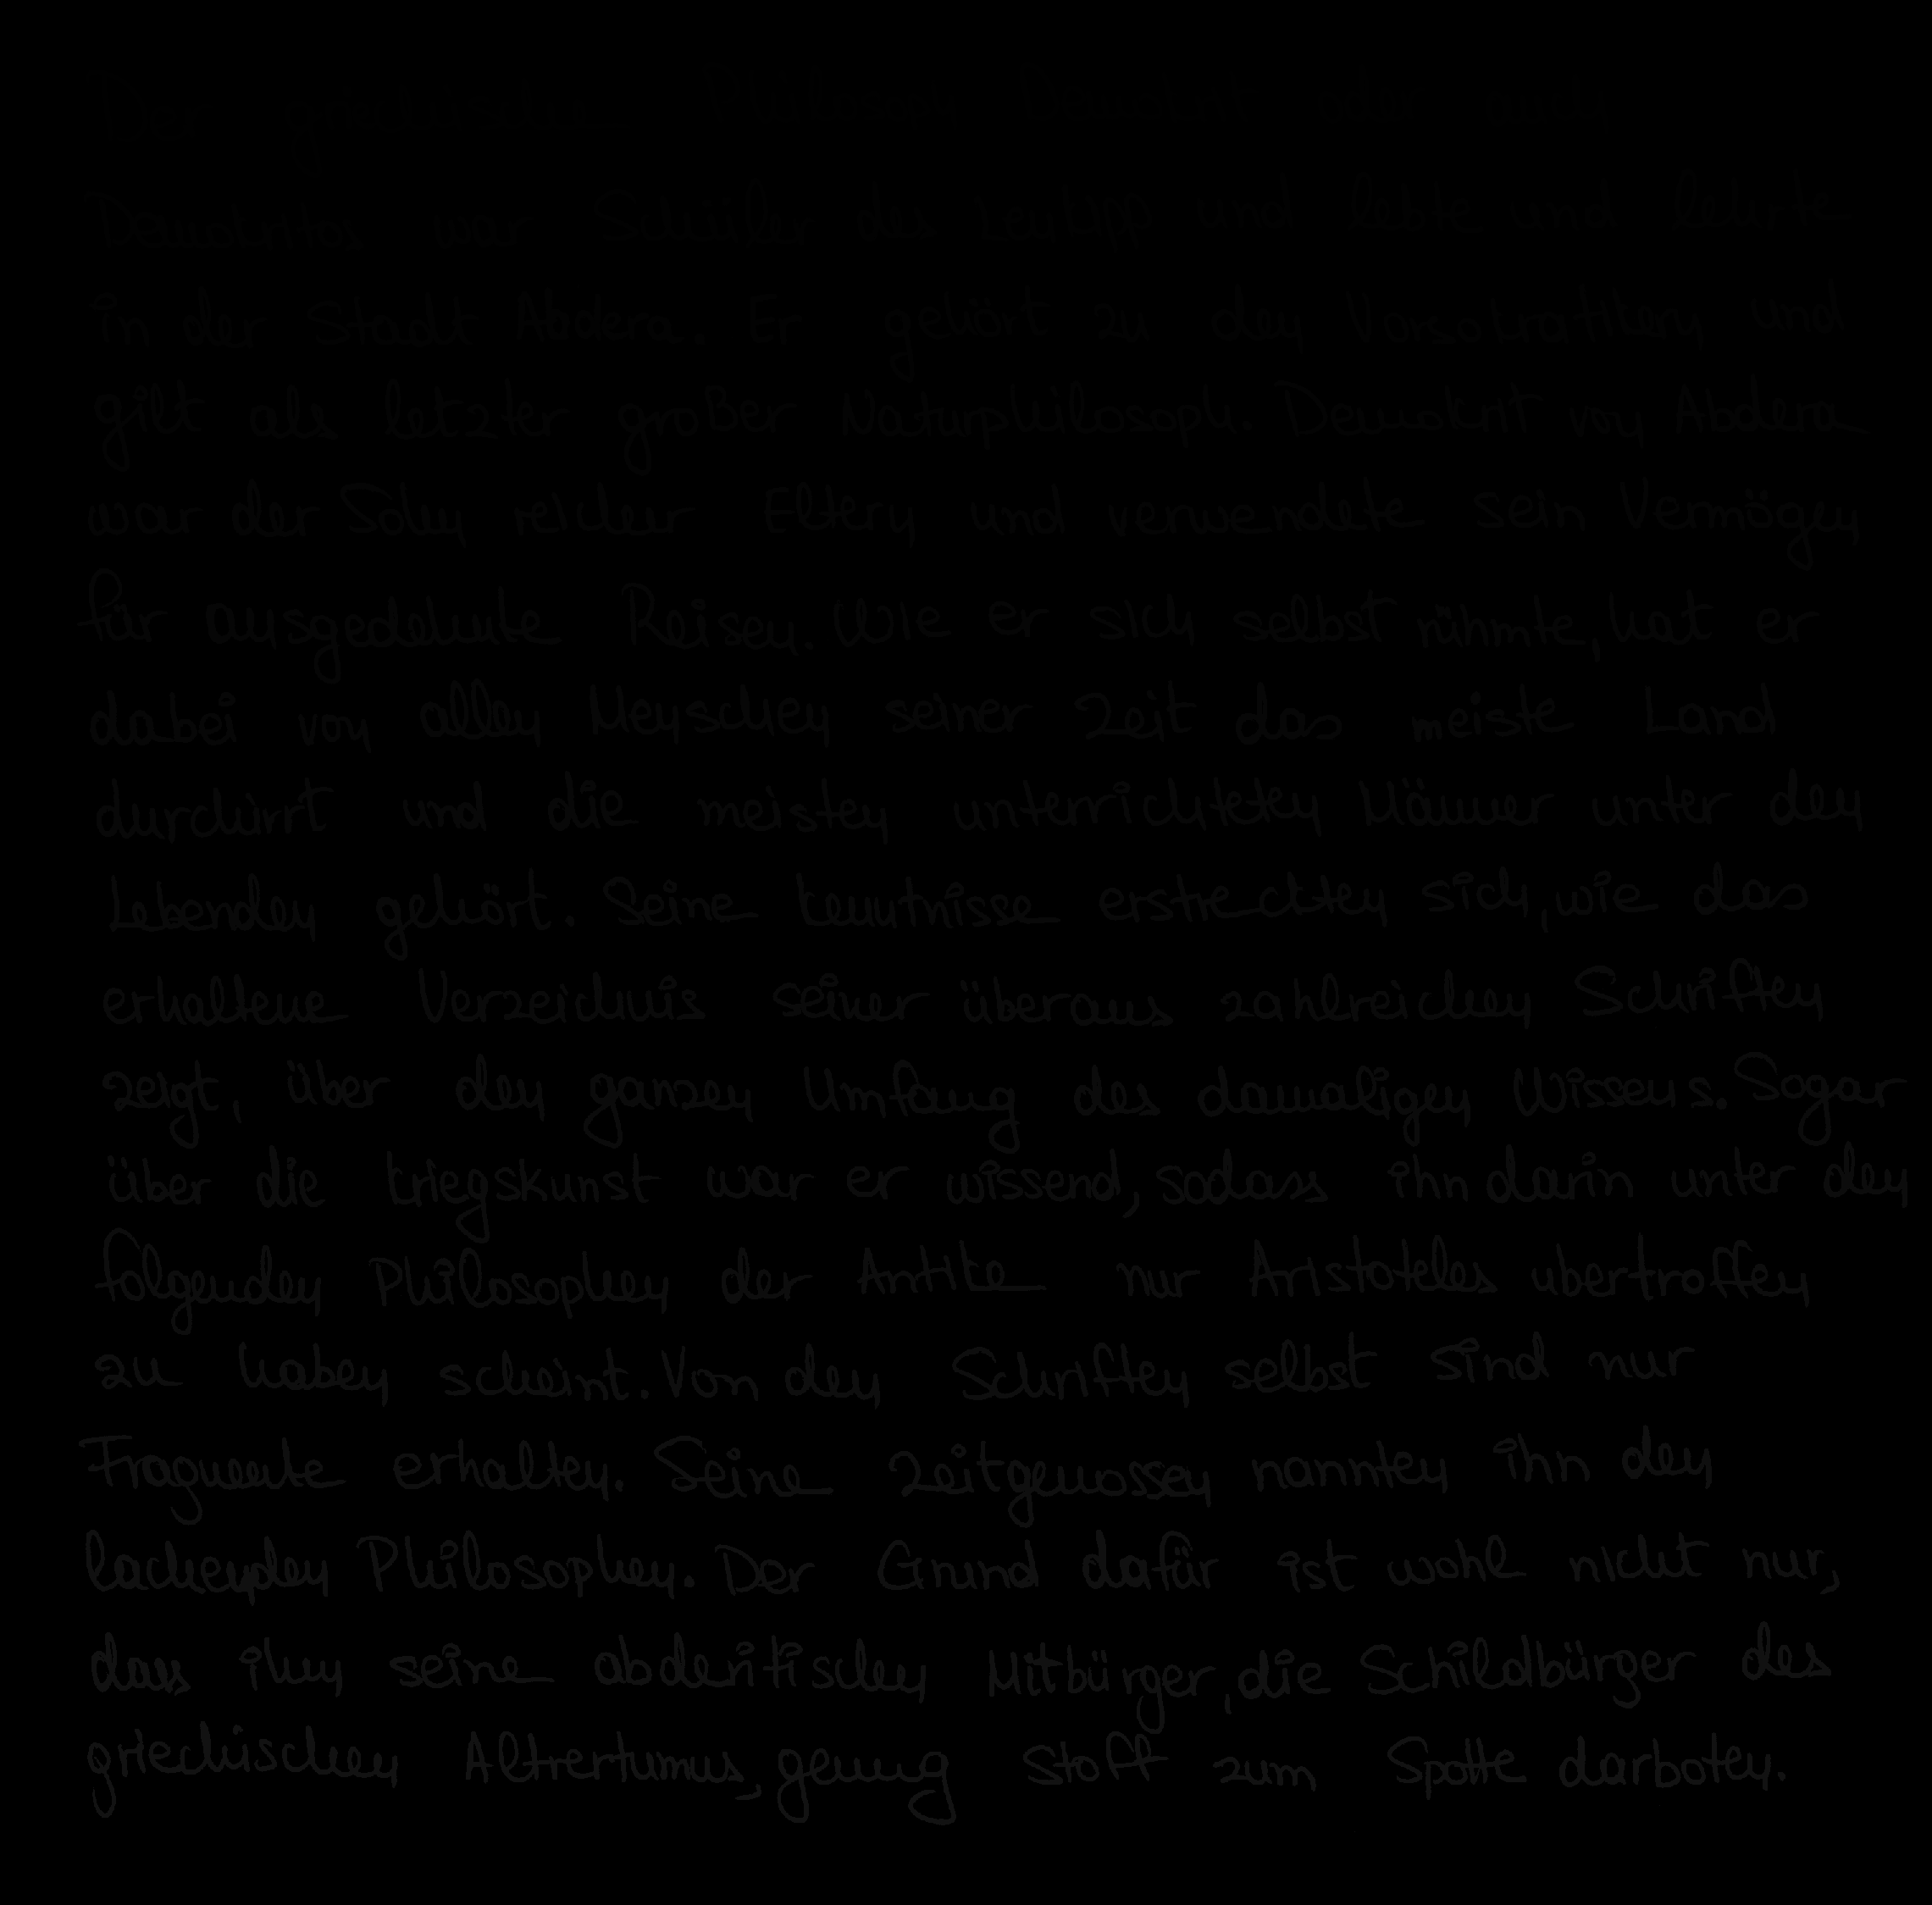 Der griechische Philosoph Demokrit oder auch
Demokritos war Schüler des Leukipp und lebte und lehrte
in der Stadt Abdera. Er gehört zu den Vorsokratikern und
gilt als letzter großer Naturphilosoph. Demokrit von Abdera
war der Sohn reicher Eltern und verwendete sein Vermögen
für ausgedehnte Reisen. Wie er sich selbst rühmte, hat er
dabei von allen Menschen seiner Zeit das meiste Land
durchirrt und die meisten unterrichteten Männer unter den
Lebenden gehört. Seine Kenntnisse erstreckten sich, wie das
erhaltene Verzeichnis seiner überaus zahlreichen Schriften
zeigt, über den ganzen Umfang des damaligen Wissens. Sogar
über die Kriegskunst war er wissend, sodass ihn darin unter den
folgenden Philosophen der Antike nur Aristoteles übertroffen
zu haben scheint. Von den Schriften selbst sind nur
Fragmente erhalten. Seine Zeitgenossen nannten ihn den
lachenden Philosophen. Der Grund dafür ist wohl nicht nur,
dass ihm seine abderitischen Mitbürger, die Schildbürger des
griechischen Altrertums, genug Stoff zum Spotte darboten.